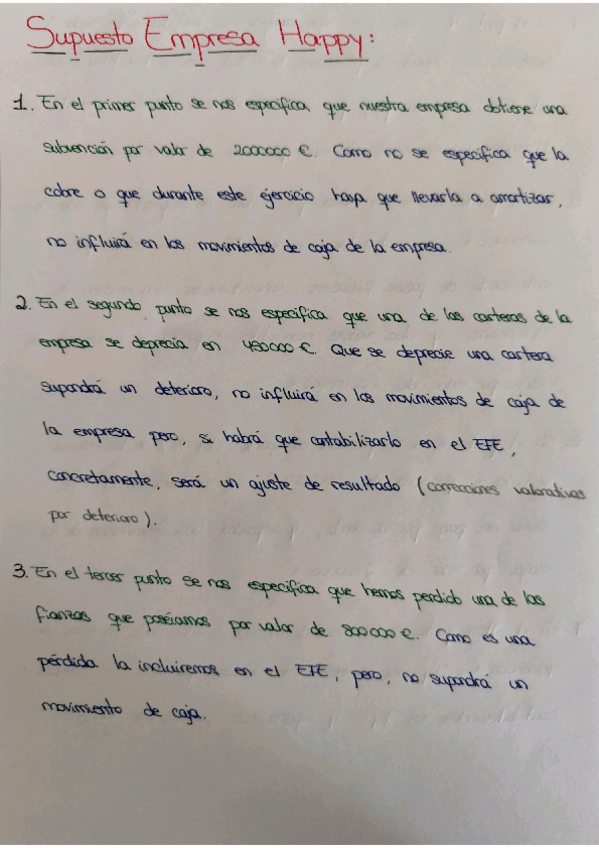 Supuesto Empresa Happy:
1. En el primer punto se nos especifica que nuestra empresa obtiene una
subvención por valor de 2000000 €. Como no se especifica que la
cobre o que durante este ejercicio haya que llevarla a amortizar,
no influirá en los movimientos de caja de la empresa.
2. En el segundo punto se nos especifica que una de las carteras de la
empresa se deprecia en 450000 €. Que se deprecie una cartera
supondrá un deterioro, no influirá en los movimientos de caja de
la empresa pero, si habrá que contabilizarlo en el EFE,
concretamente, será un ajuste de resultado (correcciones valorativas
por deterioro).
3. En el tercer punto se nos especifica que hemos perdido una de las
fianzas que poséiamos por valor de 800000 €. Como es una
pérdida la incluiremos en el EFE, pero, no supondrá un
movimiento de caja.